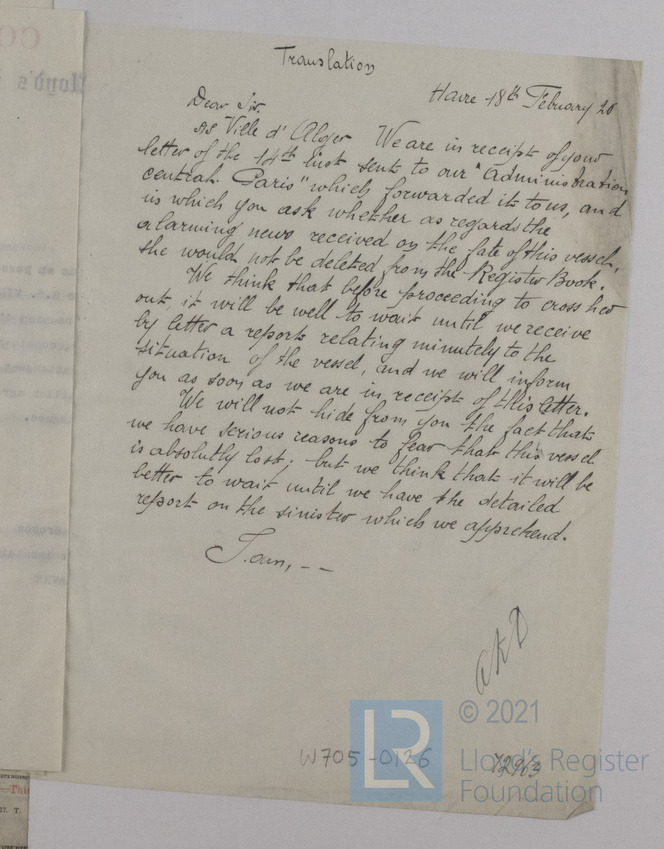 Translation
Havre 18th February 20
Dear Sir,
As Ville d'Alger We are in receipt of your
letter of the 14th inst sent to our "Administration
central Paris" which forwarded it to us, and
in which you ask whether as regards the
alarming news received on the fate of this vessel,
she would not be deleted from the Register Book.
We think that before proceeding to cross her
out, it will be well to wait until we receive
by letter a report relating minutely to the
situation of the vessel, and we will inform
you as soon as we are in receipt of this letter.
We will not hide from you the fact that
we have serious reasons to fear that this vessel
is absolutly lost; but we think that it will be
better to wait until we have the detailed
report on the sinister which we apprehend.
I am, --
W705-0126
© 2021
Lloyd's Register
Foundation
LR